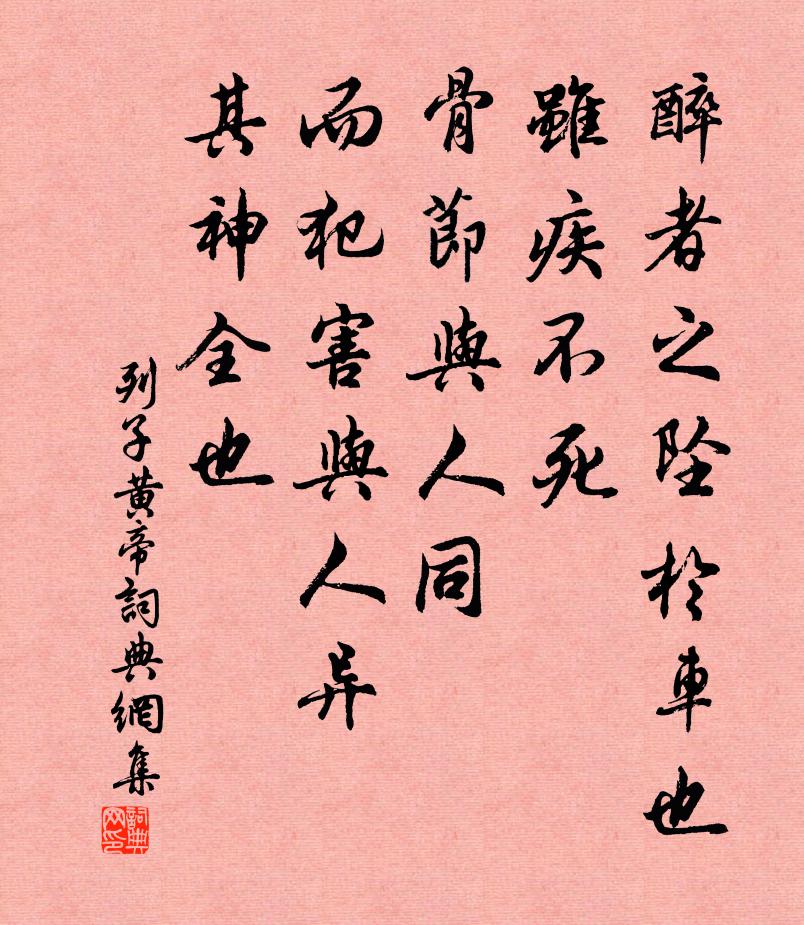 醉者之墜於車也
雖疾不死
骨節與人同
而犯害與人异
其神全也
列子黃帝詞典網集
詞典网印